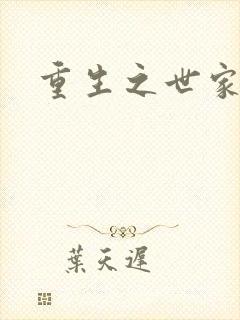 重生之世家
葉天遲